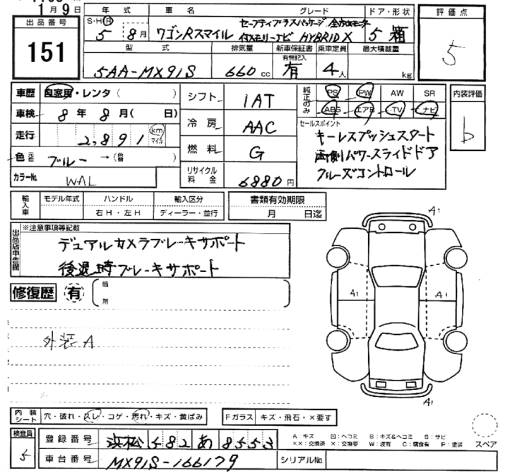 11月9日
出品番号
151
年式 車名 グレード ドア・形状
S・H・R
5年 8月 ワゴンRスマイル セーフティプラスパッケージ 全方位モニター
メモリーナビ HYBRID X 5 箱
型式 排気量 新車保証書 乗車定員 最大積載量
有無記入
5AA-MX91S 660cc 有 4人 kg
評価点
5
車歴 自家用・レンタ( )
車検 8年 8月( 日)
走行 2,891 km マイル
色 ブルー →(前色)
カラーNo. WAL
シフト 1AT
冷房 AAC
燃料 G
リサイクル料金 6880円
純正のみ PS PW AW SR
ABS エアB TV ナビ
セールスポイント
キーレスプッシュスタート
両側パワースライドドア
クルーズコントロール
内装評価
b
輸入車 モデル年式 ハンドル 輸入区分
年 右H・左H ディーラー・並行
書類有効期限
月 日迄
出品店申告欄
※注意事項等記載
デュアルカメラブレーキサポート
後退時ブレーキサポート
修復歴 有
箇所
外装A
A1
A1 A1
A1
内装シート 穴・破れ・スレ・コゲ・汚れ・キズ・黄ばみ
Fガラス キズ・飛石・X要す
検査員
5
登録番号 浜松 582 あ 8553
車台番号 MX91S-166179
シリアルNo.
A キズ
スペア